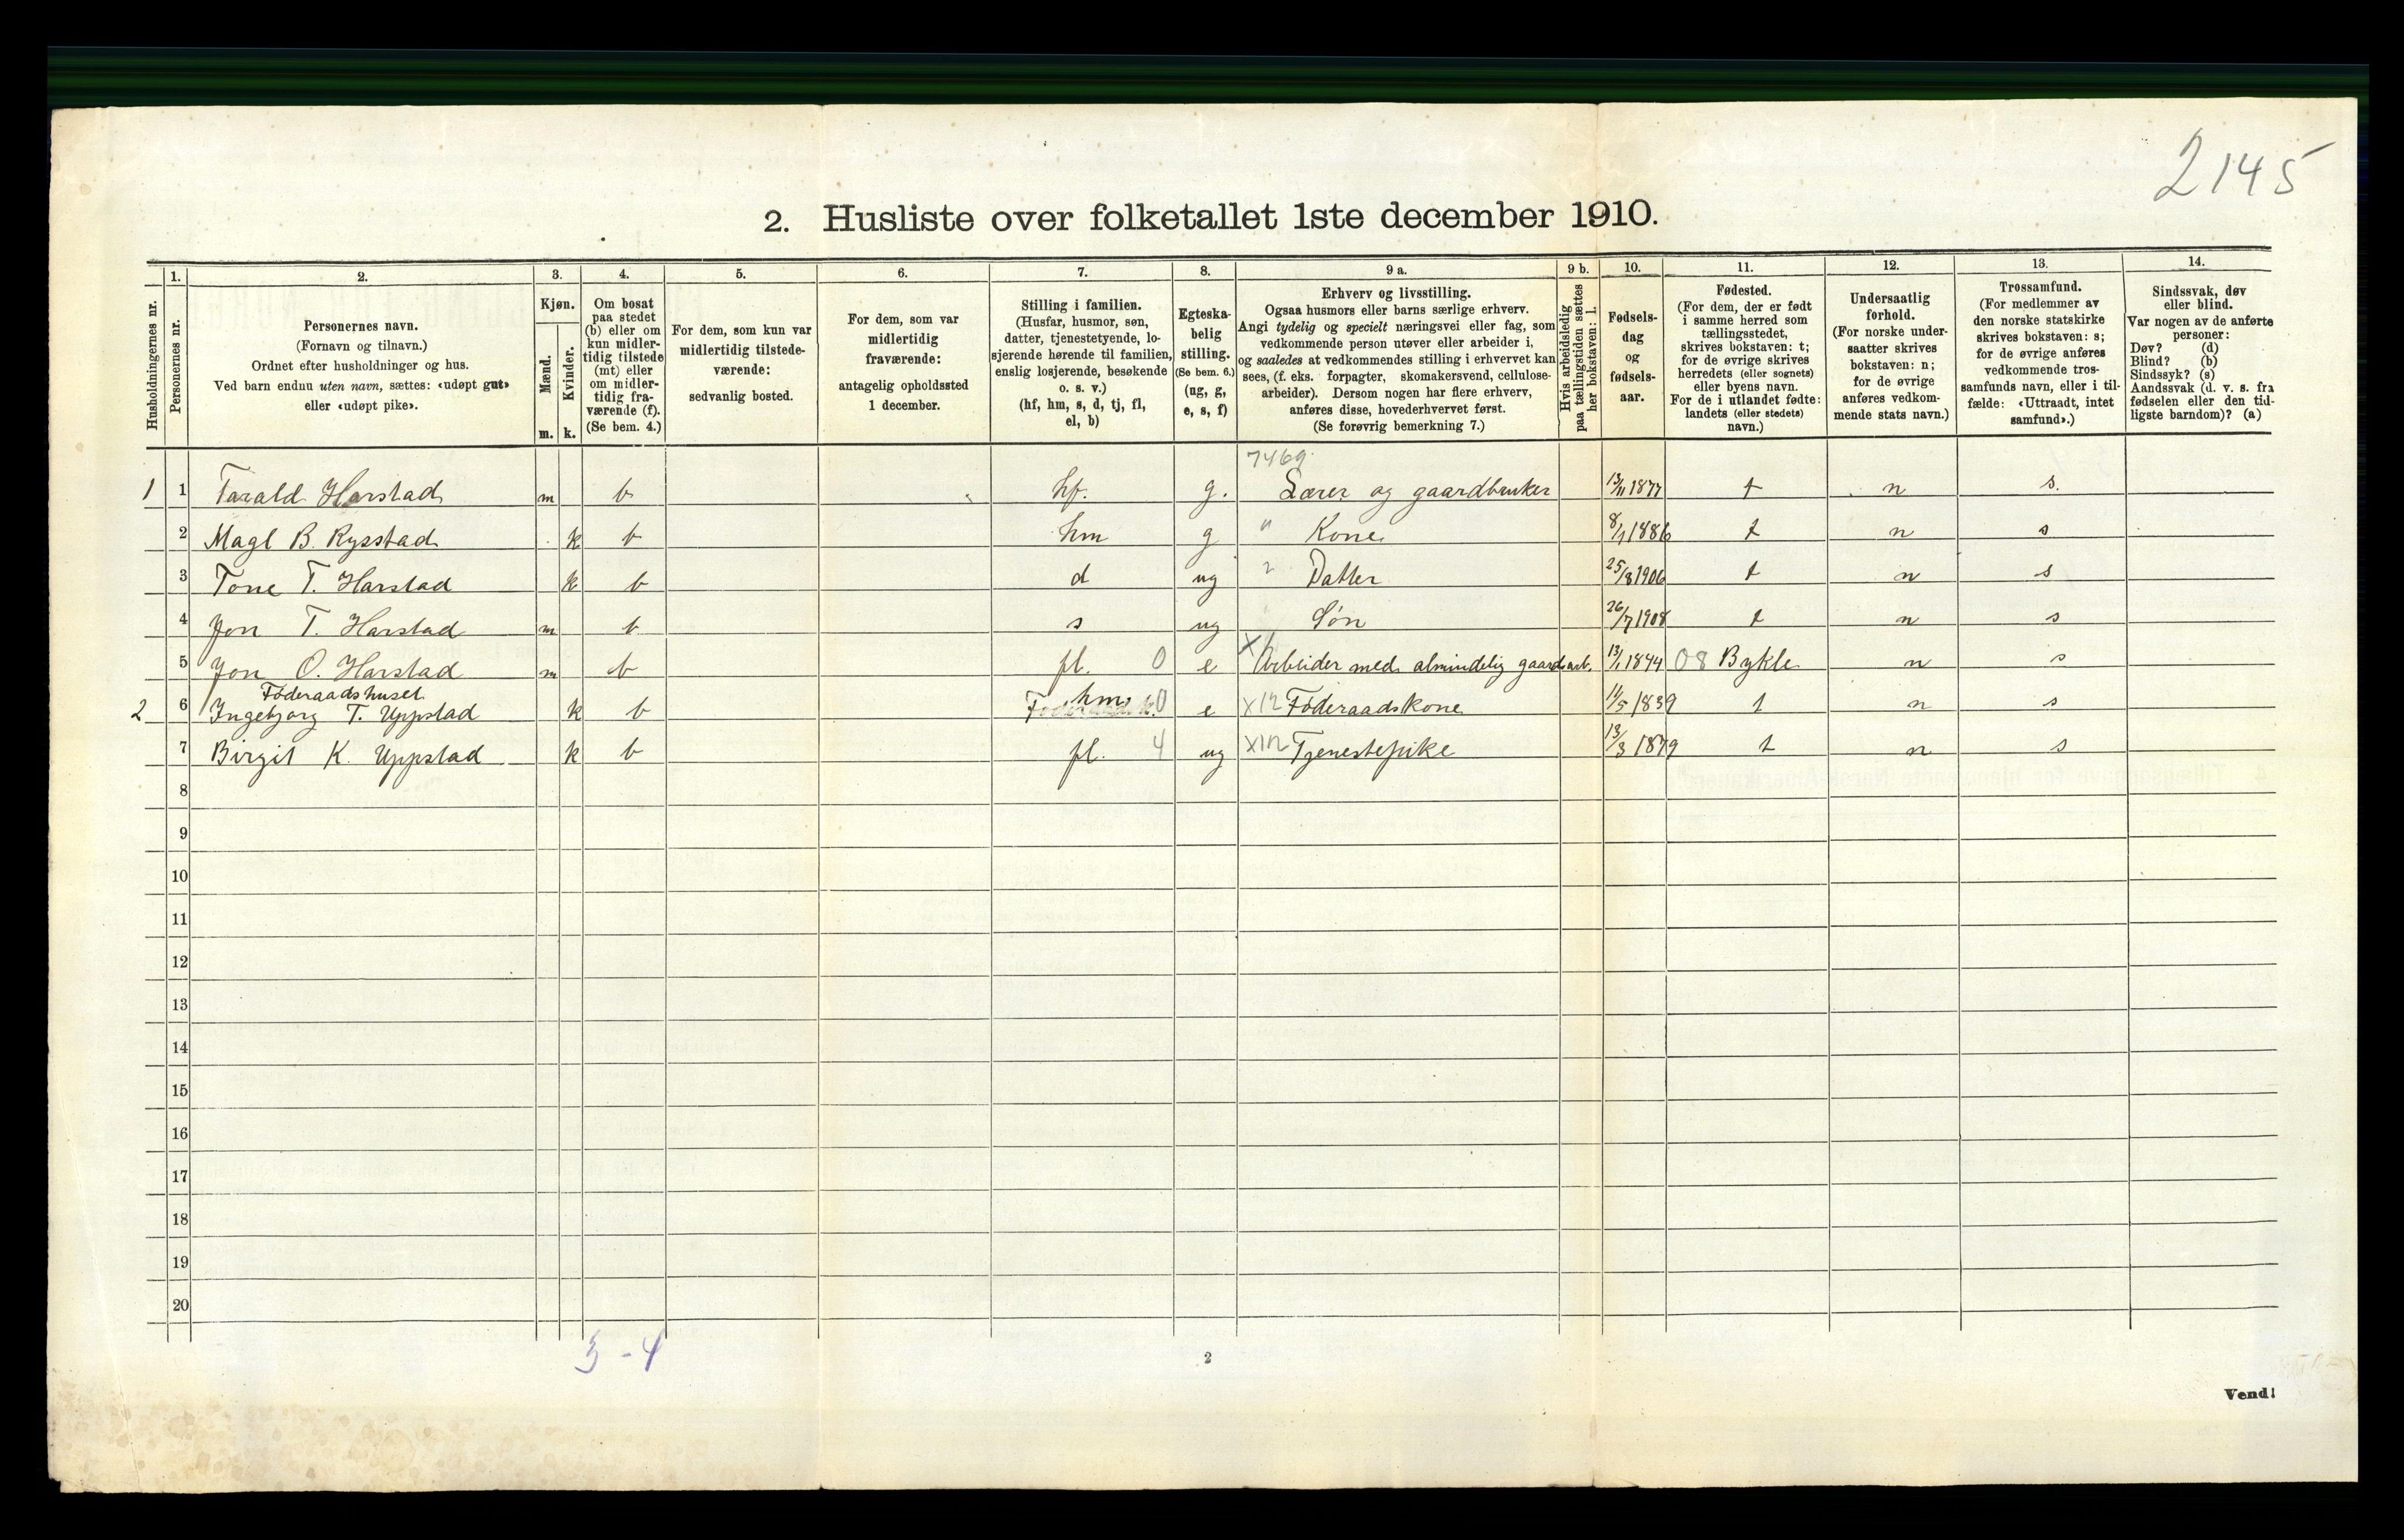 2145
2. Husliste over folketallet 1ste december 1910.
1. 2. 3. 4. 5. 6. 7. 8. 9 a. 9 b. 10. 11. 12. 13. 14.
Husholdningernes nr.
Personernes nr.
Personernes navn.
(Fornavn og tilnavn.)
Ordnet efter husholdninger og hus.
Ved barn endnu uten navn, sættes: «udøpt gut»
eller «udøpt pike».
Kjøn.
Mænd.
Kvinder.
m. k.
Om bosat
paa stedet
(b) eller om
kun midler-
tidig tilstede
(mt) eller
om midler-
tidig fra-
værende (f).
(Se bem. 4.)
For dem, som kun var
midlertidig tilstede-
værende:
sedvanlig bosted.
For dem, som var
midlertidig
fraværende:
antagelig opholdssted
1 december.
Stilling i familien.
(Husfar, husmor, søn,
datter, tjenestetyende, lo-
sjerende hørende til familien,
enslig losjerende, besøkende
o. s. v.)
(hf, hm, s, d, tj, fl,
el, b)
Egteska-
belig
stilling.
(Se bem. 6.)
(ug, g,
e, s, f)
Erhverv og livsstilling.
Ogsaa husmors eller barns særlige erhverv.
Angi tydelig og specielt næringsvei eller fag, som
vedkommende person utøver eller arbeider i,
og saaledes at vedkommendes stilling i erhvervet kan
sees, (f. eks. forpagter, skomakersvend, cellulose-
arbeider). Dersom nogen har flere erhverv,
anføres disse, hovederhvervet først.
(Se forøvrig bemerkning 7.)
Hvis arbeidsledig
paa tællingstiden sættes
her bokstaven: l.
Fødsels-
dag
og
fødsels-
aar.
Fødested.
(For dem, der er født
i samme herred som
tællingsstedet,
skrives bokstaven: t;
for de øvrige skrives
herredets (eller sognets)
eller byens navn.
For de i utlandet fødte:
landets (eller stedets)
navn.)
Undersaatlig
forhold.
(For norske under-
saatter skrives
bokstaven: n;
for de øvrige
anføres vedkom-
mende stats navn.)
Trossamfund.
(For medlemmer av
den norske statskirke
skrives bokstaven: s;
for de øvrige anføres
vedkommende tros-
samfunds navn, eller i til-
fælde: «Uttraadt, intet
samfund».)
Sindssvak, døv
eller blind.
Var nogen av de anførte
personer:
Døv? (d)
Blind? (b)
Sindssyk? (s)
Aandssvak (d. v. s. fra
fødselen eller den tid-
ligste barndom)? (a)
7469
1 1 Tarald Harstad m b hf. g. Lærer og gaardbruker 13/11 1877 t n s.
2 Magl B. Rysstad k b hm g " Kone 8/1 1886 t n s
3 Tone T. Harstad k b d ug Datter 25/8 1906 t n s
4 Jon T. Harstad m b s ug Søn 26/7 1908 t n s
5 Jon O. Harstad m b fl. 0 e Arbeider med almindelig gaardsarb. 13/1 1844 08 Bykle n s
Føderaadshuset
2 6 Ingebjorg T. Uppstad k b hm 0 e X12 Føderaadskone 11/5 1839 t n s
7 Birgit K. Uppstad k b fl. 4 ug X12 Tjenestepike 13/3 1879 t n s
8
9
10
11
12
13
14
15
16
17
18
19
20
3 - 4
2
Vend!